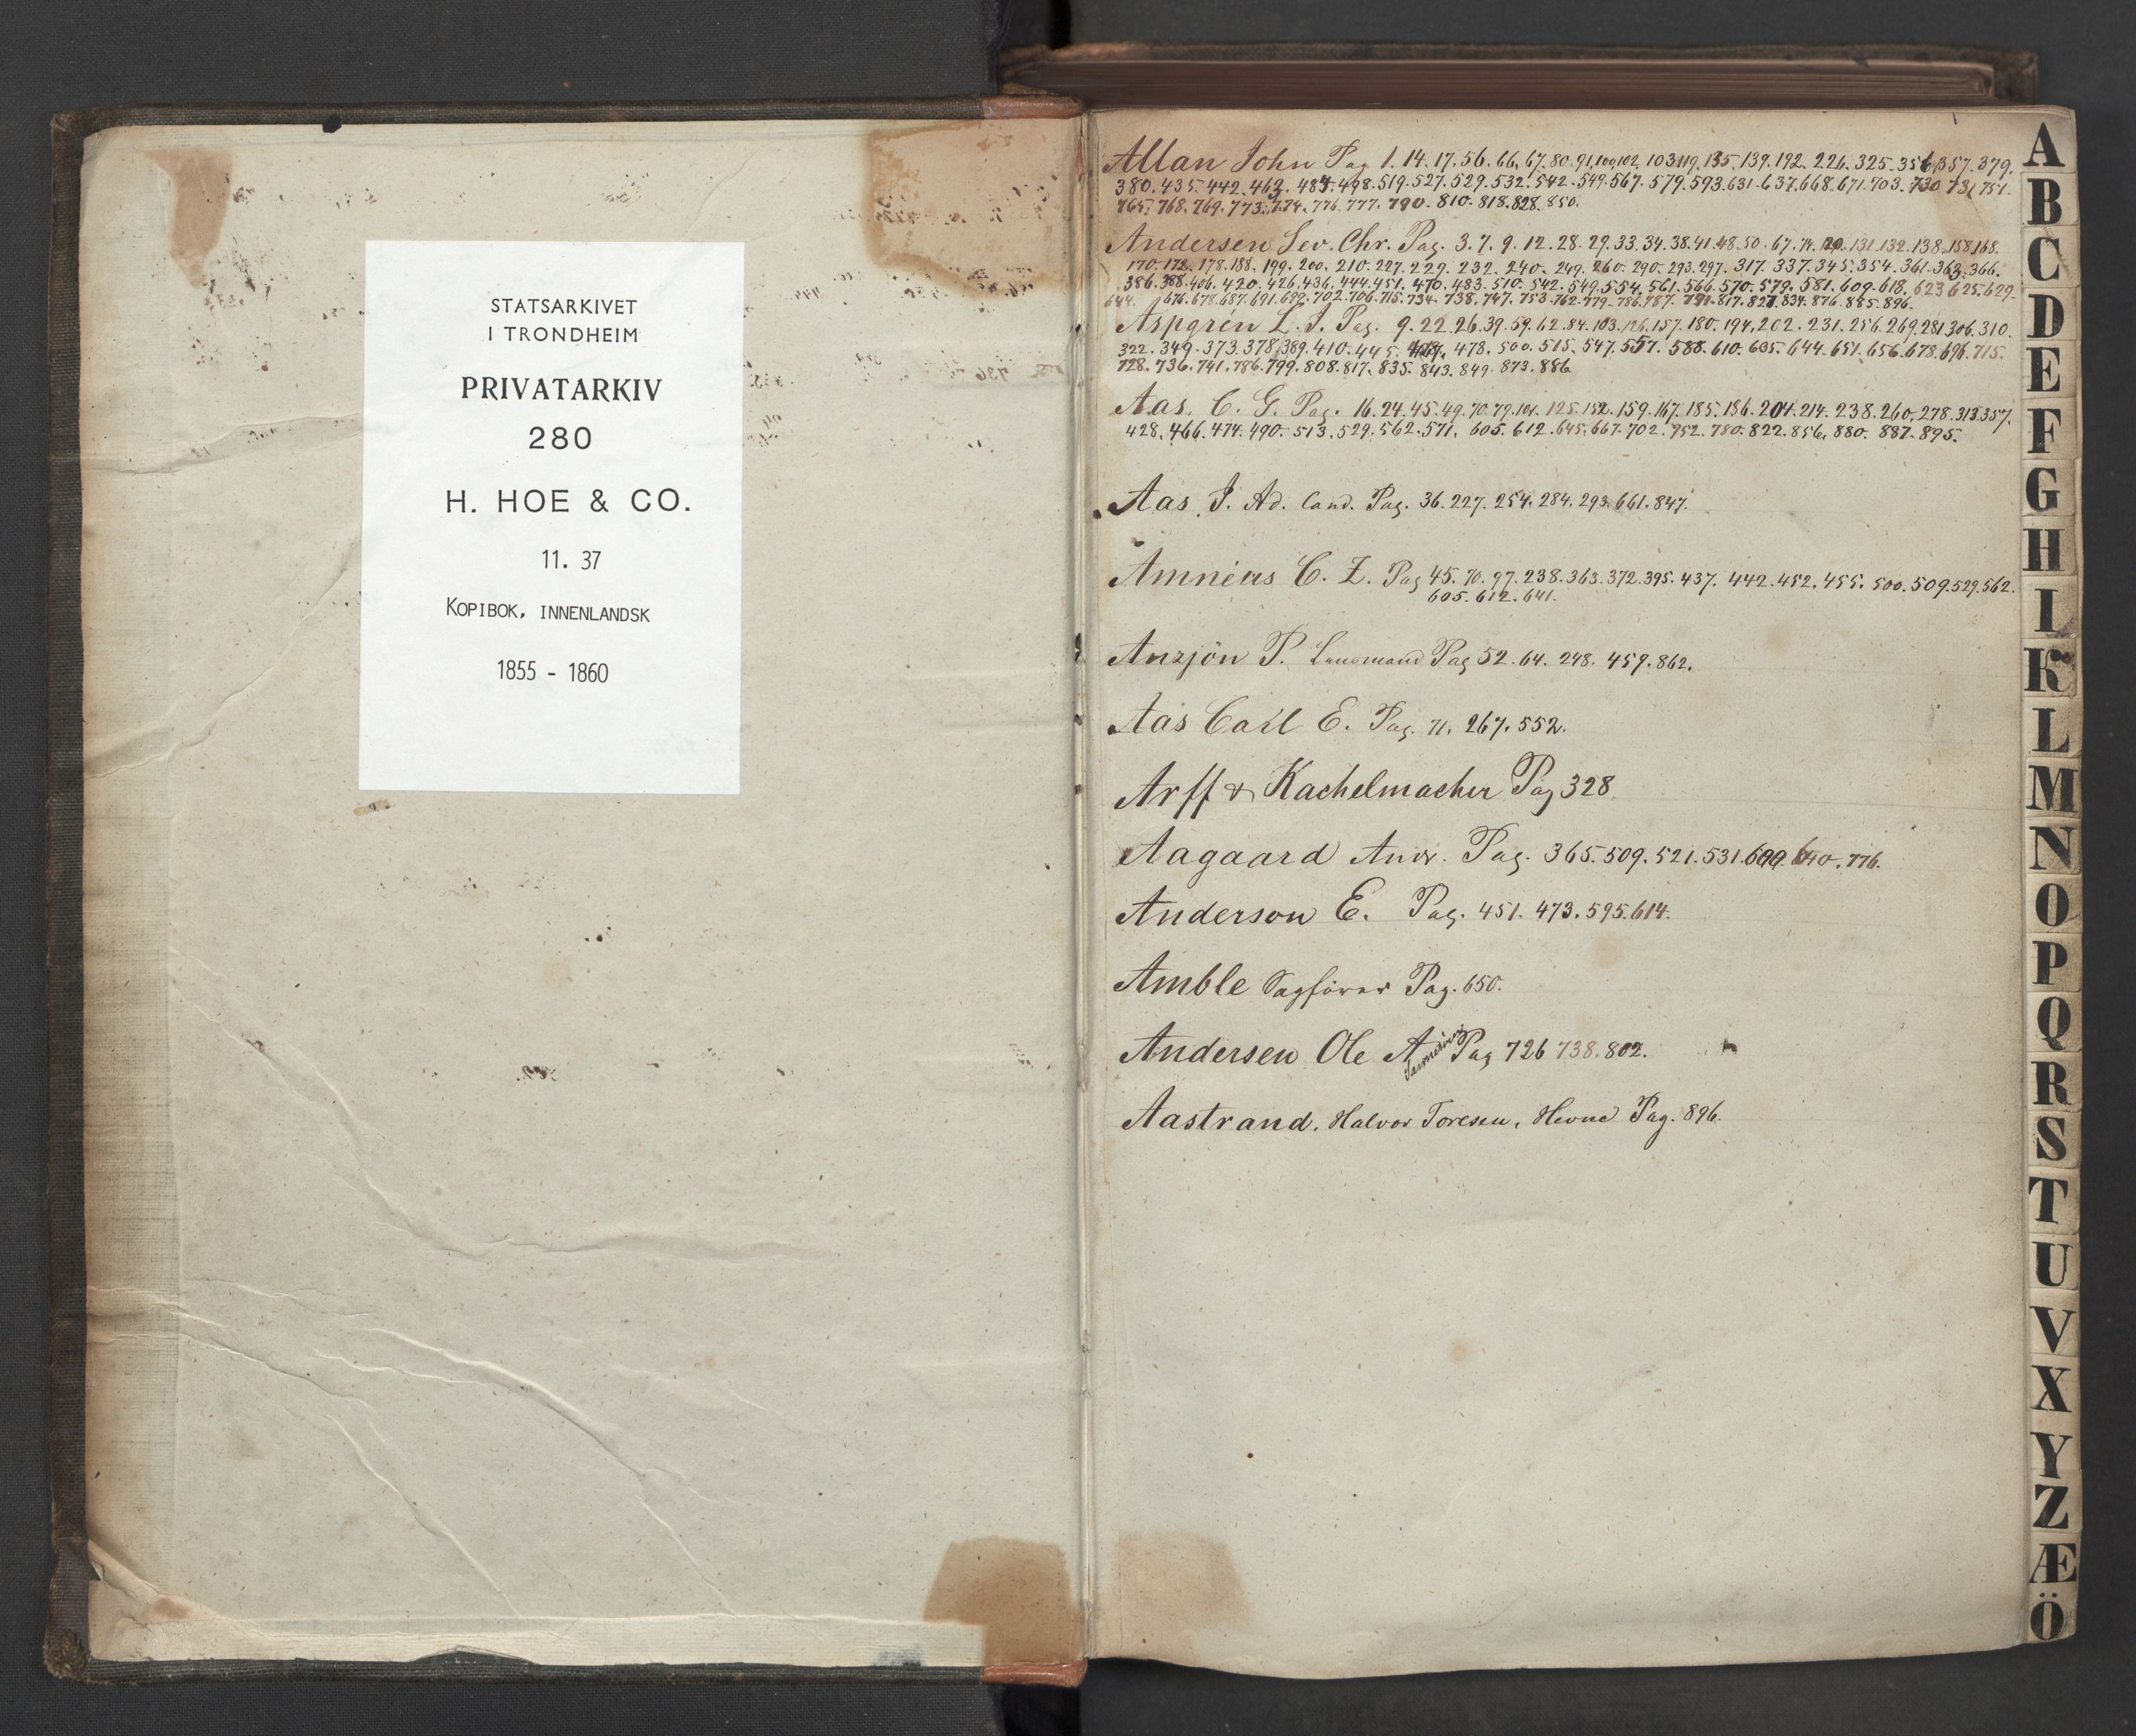 STATSARKIVET
I TRONDHEIM
PRIVATARKIV
280
H. HOE & CO.
11. 37
KOPIBOK, INNENLANDSK
1855 - 1860
Allan John Pag 1. 14. 17. 56. 66. 67. 80. 91. 100. 102. 103. 119. 135. 139. 192. 226. 325. 356. 357. 379.
380. 435. 442. 462. 484. 498. 519. 527. 529. 532. 542. 549. 567. 579. 593. 631. 637. 668. 671. 703. 730 731 751.
765. 768. 769. 773. 774. 776. 777. 790. 810. 818. 828. 850.
Andersen Sev. Chr. Pag. 3. 7. 9. 12. 28. 29. 33. 34. 38. 41. 48. 50. 67. 74. 120. 131. 132. 138. 158. 168.
170. 172. 178. 188. 199. 200. 210. 227. 229. 232. 240. 249. 260. 290. 293. 297. 317. 337. 345. 354. 361. 363. 366.
386. 388. 406. 420. 426. 436. 444. 451. 470. 483. 510. 542. 549. 554. 561. 566. 570. 579. 581. 609. 618. 623 625. 629.
644. 676. 678. 687. 691. 692. 702. 706. 715. 734. 738. 747. 753. 762. 779. 786. 787. 791. 817. 827. 834. 876. 885. 896.
Aspgrén L. J. Pag. 9. 22. 26. 39. 59. 62. 84. 103. 126. 157. 180. 194. 202. 231. 256. 269. 281 306. 310.
322. 349. 373. 378. 389. 410. 445. 478. 500. 515. 547. 557. 588. 610. 635. 644. 651. 656. 678. 696. 715.
728. 736. 741. 786. 799. 808. 817. 835. 843. 849. 873. 886
Aas, C. G. Pag. 16. 24. 45. 49. 70. 79. 101. 125. 152. 159. 167. 185. 186. 204. 214. 238. 260. 278. 313. 357.
428. 466. 474. 490. 513. 529. 562. 571. 605. 612. 645. 667. 702. 752. 780. 822. 856. 880. 887. 895.
Aas, J. Ad. Cand. Pag. 36. 227. 254. 284. 293. 661. 847.
Amnéus C. Z. Pag 45. 70. 97. 238. 363. 372. 395. 437. 442. 452. 455. 500. 509. 529. 562.
605. 612. 641.
Anzjön P. Lensmand Pag 52. 64. 248. 459. 862.
Aas Carl E. Pag. 71. 267. 552.
Arff & Kachelmacher Pag 328
Aagaard Andr. Pag. 365. 509. 521. 531. 640. 776.
Anderson E. Pag. 451. 473. 595. 614.
Amble Sagförer Pag. 650.
Andersen Ole A Pag 726 738. 802.
Aastrand, Halvor Toresen, Hevne Pag. 896.
A
B
C
D
E
F
G
H
I
K
L
M
N
O
P
Q
R
S
T
U
V
X
Y
Z
Æ
Ö